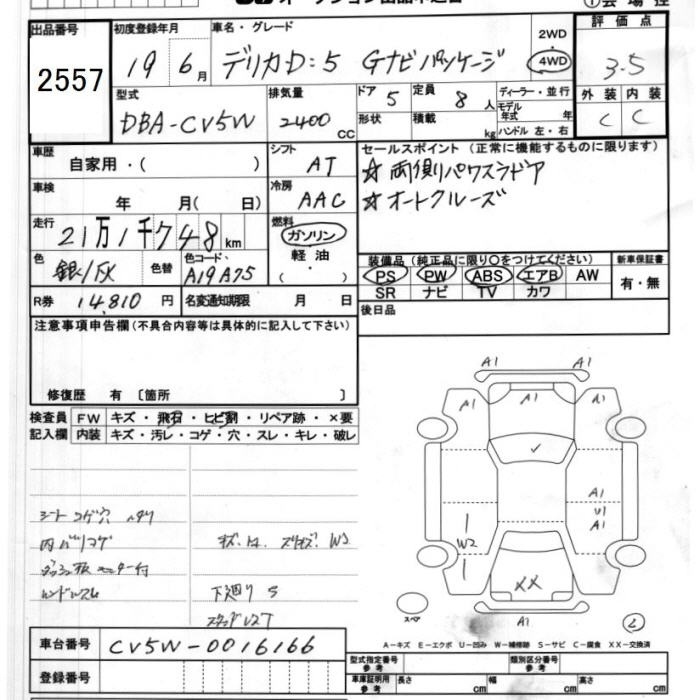 出品番号 初度登録年月 車名・グレード 2WD 評価点
2557 19 6月 デリカD:5 Gナビパッケージ 4WD 3.5
型式 排気量 ドア 5 定員 8人 ディーラー・並行 外装 内装
DBA-CV5W 2400 CC 形状 積載 kg モデル年式 年 C C
ハンドル 左・右
車歴 シフト セールスポイント(正常に機能するものに限ります)
自家用・( ) AT ☆両側パワスラドア
車検 冷房 ☆オートクルーズ
年 月( 日) AAC
走行 燃料
21万1千748km ガソリン
色 色替 色コード 軽油 装備品(純正品に限り○をつけてください) 新車保証書
銀/灰 A19A75 ・( ) PS PW ABS エアB AW 有・無
SR ナビ TV カワ
R券 14,810円 名変通知期限 月 日 後日品
注意事項申告欄(不具合内容等は具体的に記入して下さい)
修復歴 有〔箇所 〕
検査員 FW キズ・飛石・ヒビ割・リペア跡・×要
記入欄 内装 キズ・汚レ・コゲ・穴・スレ・キレ・破レ
A1 A1
A1 A1
A1
U1
A1
W2
XX
A1
シートコゲ穴
内バリコゲ
W2
下廻りS
スペア
2
車台番号 CV5W-0016166
A-キズ E-エクボ U-凹み W-補修跡 S-サビ C-腐食 XX-交換済
登録番号
型式指定番号 参考 類別区分番号 参考
車庫証明用 参考 長さ cm 幅 cm 高さ cm